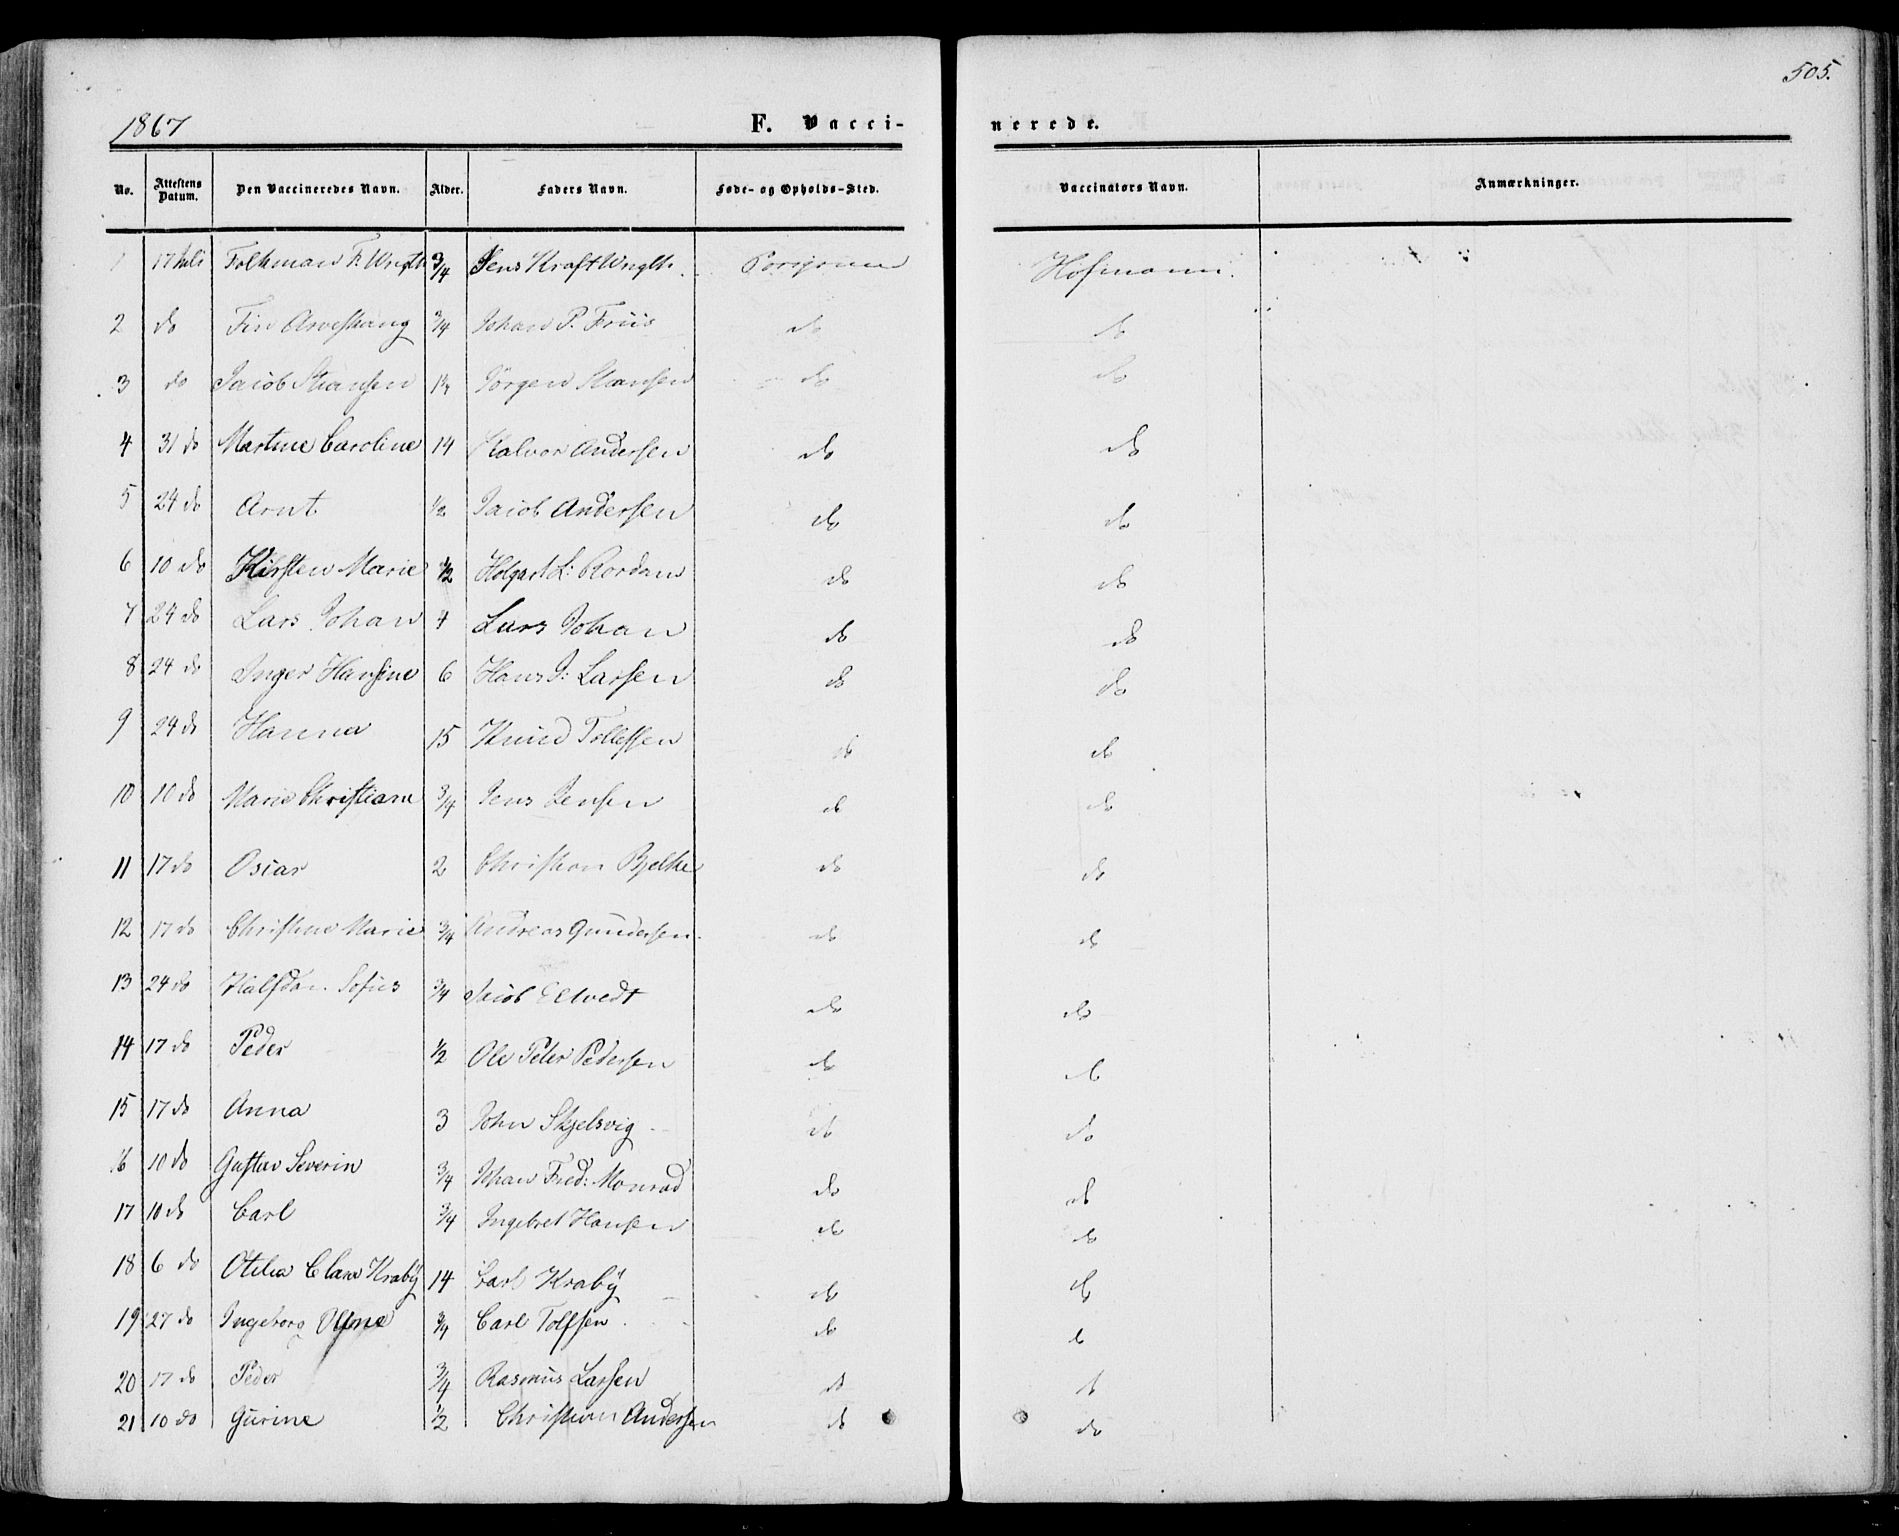 505.
1867 F. Vacci- nerede.
No. Attestens Datum. Den Vaccineredes Navn. Alder. Faders Navn. Føde- og Opholds-Sted. Vaccinators Navn. Anmærkninger.
1 17 Juli Folkman F. Wrigth 3/4 Jens Kraft Wrigth. Porsgrund Hofmann.
2 do Fin 3/4 Johan P. Friis do do
3 do Jacob Hansen Jørgen Hansen do do
4 31 do Martine Caroline 14 Halvor Andersen do do
5 24 do Arnt 1/2 Jacob Andersen do do
6 10 do Kirsten Marie 1/2 Holgart L: Rordam do do
7 24 do Lars Johan 4 Lars Johan do do
8 24 do Inger Hansine 6 Hans J: Larsen do do
9 24 do Hanna 15 Knud Tollefsen do do
10 10 do Marie Christiane 3/4 Jens Jensen do do
11 17 do Oscar 2 Christian Bjelke do do
12 17 do Christine Marie 3/4 Andreas Gundersen. do do
13 24 do Halfdan Sofus 3/4 Jacob Eltvedt do do
14 17 do Peder 1/2 Ole Peter Pedersen do do
15 17 do Anna 3 John Skjelsvig do do
16 10 do Gustav Severin 3/4 Johan Fred: Monrad do do
17 10 do Carl 3/4 Ingebret Hansen do do
18 6 do Otilia Clara Kraby 14 Carl Kraby do do
19 27 do Ingeborg 3/4 Carl Tolfsen do do
20 17 do Peder 3/4 Rasmus Larsen do do
21 10 do Gurine 1/2 Christian Andersen do do